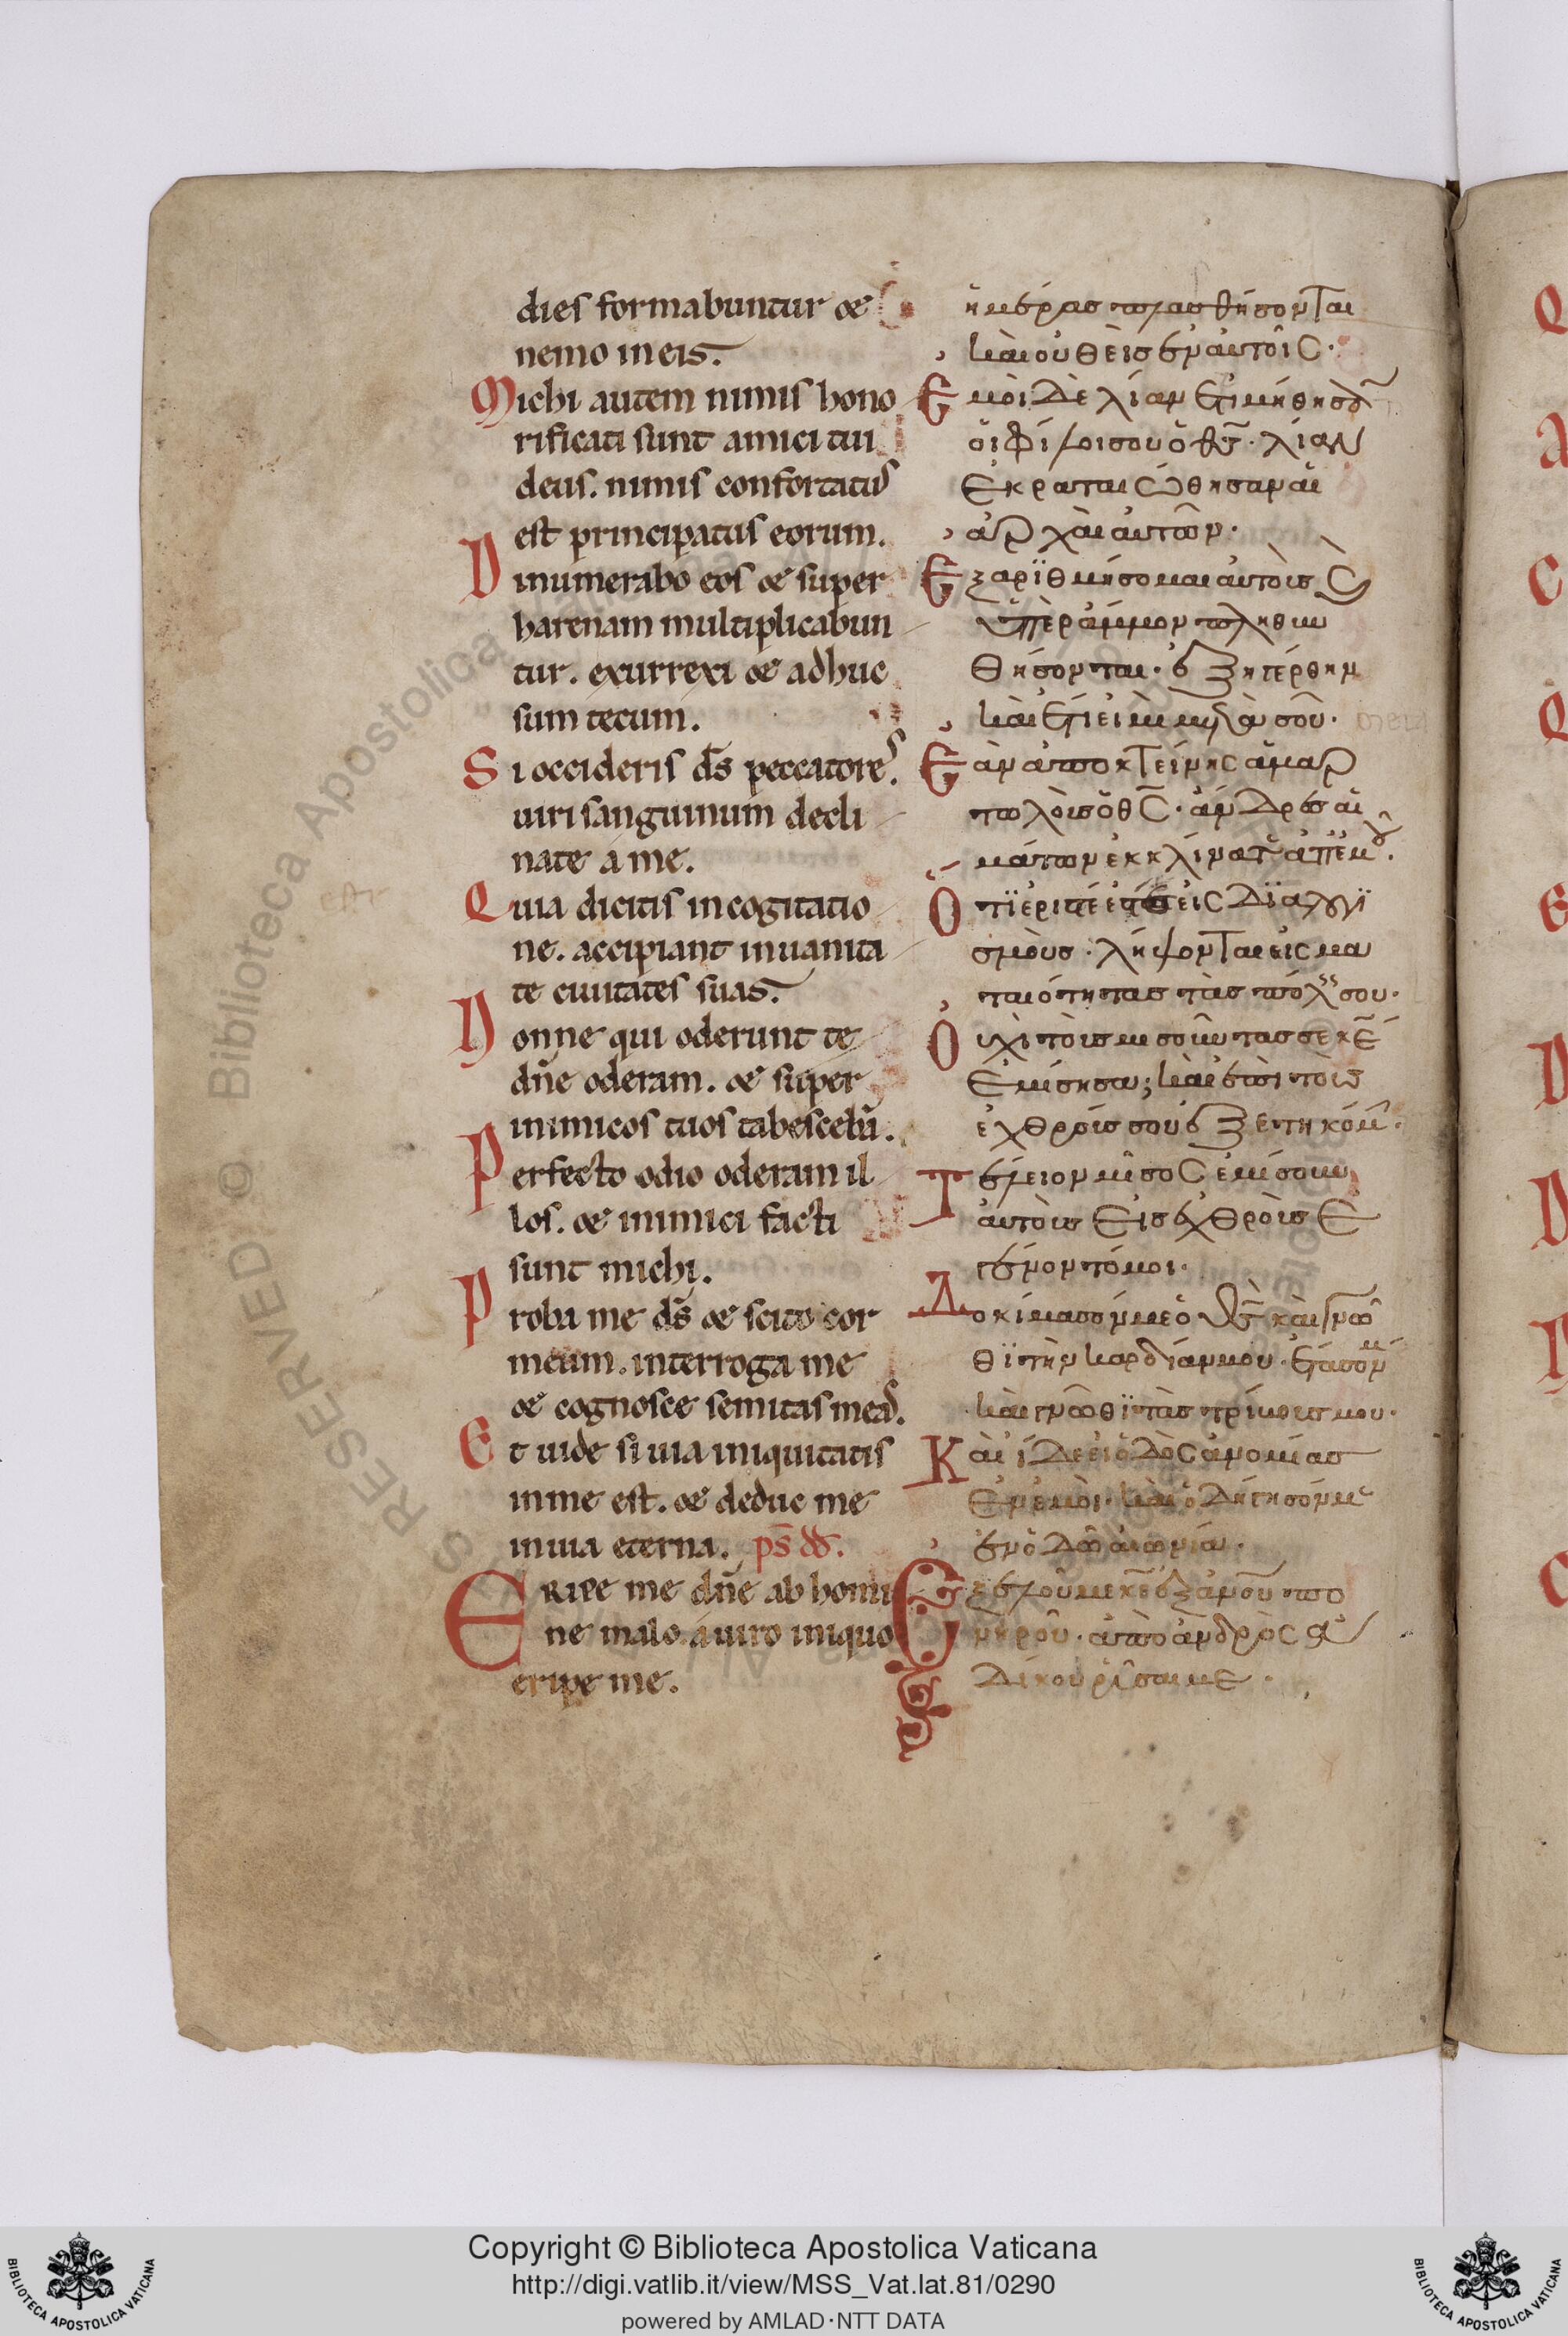 dies formabuntur &
nemo in eis.
Michi autem nimis hono
rificati sunt amici tui
deus. nimis confortatus
est principatus eorum.
Dinumerabo eos & super
harenam multiplicabun
tur. exurrexi & adhuc
sum tecum.
Si occideris ds̄ peccatores.
uiri sanguinum decli
nate a me.
Quia dicitis in cogitatio
ne. accipiant in uanita
te ciuitates suas.
Nonne qui oderunt te
dn̄e oderam. & super
inimicos tuos tabescebā.
Perfecto odio oderam il
los. & inimici facti
sunt michi.
Proba me ds̄ & scito cor
meum. interroga me
& cognosce semitas meas.
Et uide si uia iniquitatis
in me est. & deduc me
in uia eterna. ps̄ dd.
ERIPE me dn̄e ab homi
ne malo. a uiro iniquo
eripe me.
ἡμέρας πλασθήσονται
καὶ οὐθεὶς ἐν αὐτοῖς·
Ἐμοὶ δὲ λίαν ἐτιμήθησαν
οἱ φίλοι σου ὁ θς̄· λίαν
ἐκραταιώθησαν αἱ
ἀρχαὶ αὐτῶν·
Ἐξαριθμήσομαι αὐτοὺς καὶ
ὑπὲρ ἄμμον πληθυν
θήσονται· ἐξηγέρθην
καὶ ἔτι εἰμὶ μετὰ σοῦ·
Ἐὰν ἀποκτείνης ἁμαρ
τωλοὺς ὁ θς̄· ἄνδρες αἱ
μάτων ἐκκλίνατε ἀπ' ἐμοῦ.
Ὅτι ἐρεῖς διαλογι
σμοὺς· λήψονται εἰς μα
ταιότητας τὰς πόλεις σου·
Οὐχὶ τοὺς μισοῦντας σε κε̄
ἐμίσησα; καὶ ἐπὶ τοὺς
ἐχθροὺς σου ἐξετηκόμην·
Τέλειον μῖσος ἐμίσουν
αὐτοὺς εἰς ἐχθροὺς ἐ
γένοντό μοι·
Δοκίμασόν με ὁ θς̄ καὶ γνῶ
θι τὴν καρδίαν μου· ἔτασόν με
καὶ γνῶθι τὰς τρίβους μου·
Καὶ ἴδε εἰ ὁδὸς ἀνομίας
ἐν ἐμοὶ· καὶ ὁδήγησόν με
ἐν ὁδῶ αἰωνία·
Ἐξελοῦ με κε̄ ἐξ ἀνου πο
νηροῦ· ἀπὸ ἀνδρὸς ἀ
δίκου ῥῦσαι με·
Copyright © Biblioteca Apostolica Vaticana
http://digi.vatlib.it/view/MSS_Vat.lat.81/0290
powered by AMLAD·NTT DATA
BIBLIOTECA APOSTOLICA VATICANA
BIBLIOTECA APOSTOLICA VATICANA